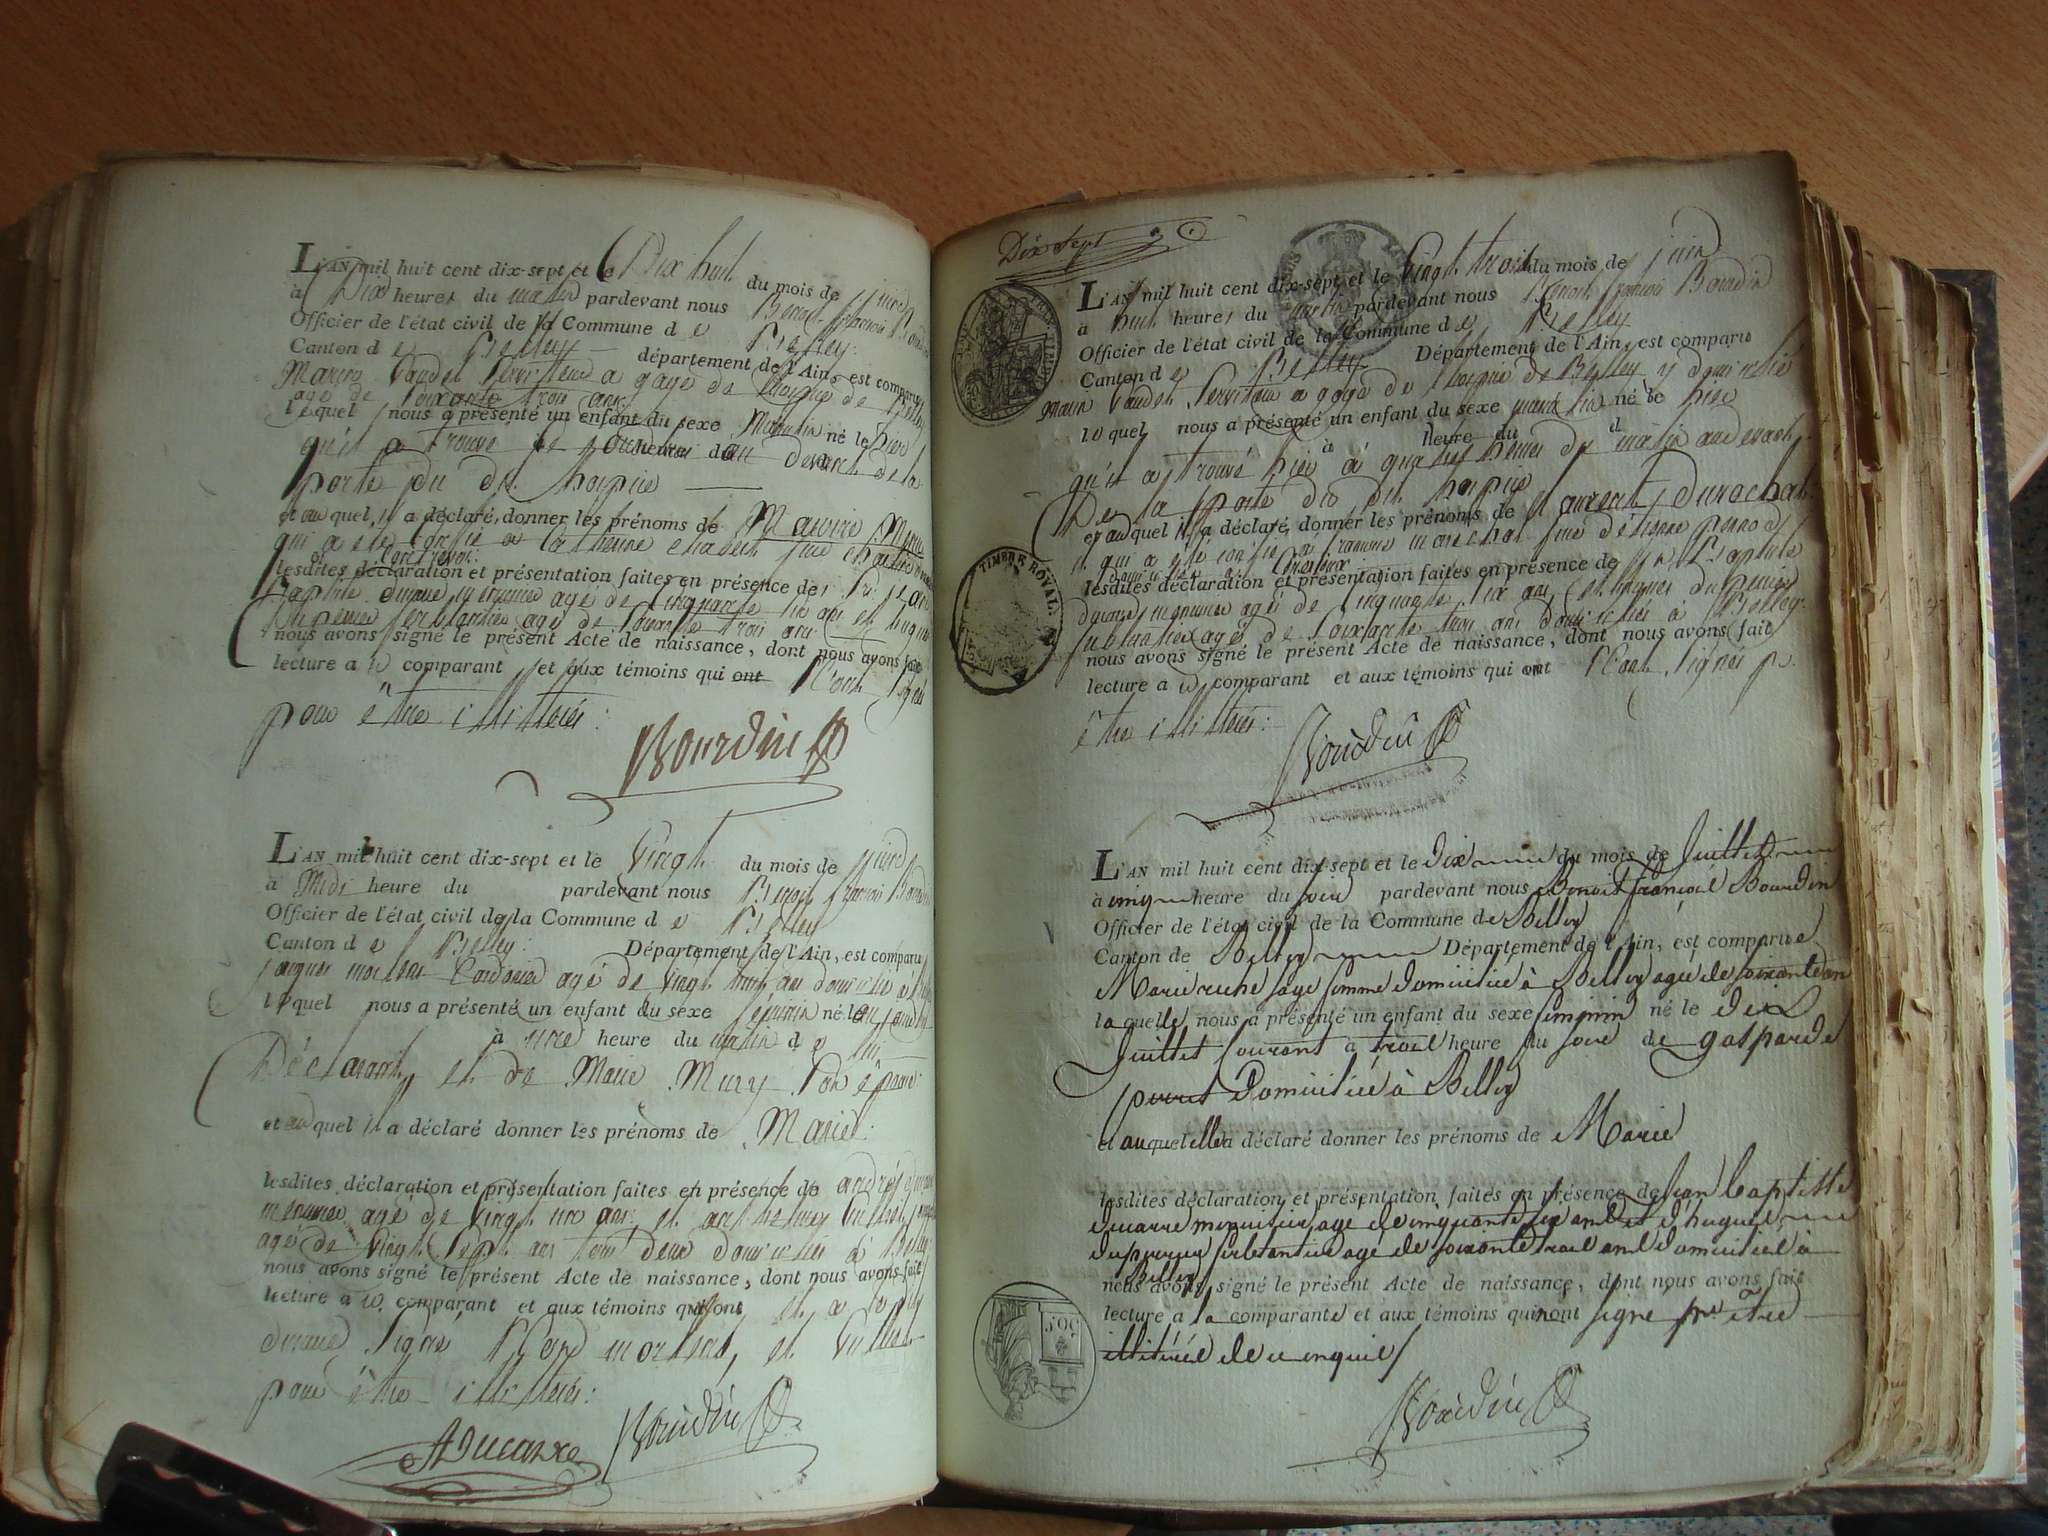 L'AN mil huit cent dix-sept et le Dix huit du mois de juin
à Dix heures du matin pardevant nous Benoit françois Bourdin
Officier de l'état civil de la Commune de Belley
Canton de Belley département de l'Ain, est comparu
Marin Vaudet Serviteur a gage de l'hospice de Belley
age de Soixante trois ans
lequel nous a présenté un enfant du sexe Masculin né le hier
qu'il a trouvé au devant de la
porte du dit hospice
et auquel il a déclaré donner les prénoms de
qui a été confié a
lesdites déclaration et présentation faites en présence de Jean
Baptiste ducarre menuisier agé de Cinquante six ans et hugues
Duperrier agé de Soixante trois ans
nous avons signé le présent Acte de naissance, dont nous avons fait
lecture a u comparant et aux témoins qui ont signés
pour être illitérés :
Bourdin
L'AN mil huit cent dix-sept et le Vingt du mois de juin
à Midi heure du pardevant nous Benoit françois Bourdin
Officier de l'état civil de la Commune de Belley
Canton de Belley Département de l'Ain, est comparu
jacques agé de Vingt huit ans domicilié à
lequel nous a présenté un enfant du sexe féminin né le
à une heure du matin de lui
Déclarant et de Marie Mury Son épouse
et auquel il a déclaré donner les prénoms de Marie
lesdites déclaration et présentation faites en présence de andré ducarre
menuisier agé de Vingt un ans et anthelme Vuillet
agé de Vingt Sept ans tous deux domiciliés à Belley
nous avons signé le présent Acte de naissance, dont nous avons fait
lecture a u comparant et aux témoins qui ont
ducarre Signé et Vuillet
pour être illitérés :
ADucarre Bourdin
Dix Sept
L'AN mil huit cent dix-sept et le Vingt trois du mois de juin
à huit heures du matin pardevant nous Benoit françois Bourdin
Officier de l'état civil de la Commune de Belley
Canton de Belley Département de l'Ain, est comparu
Marin Vaudet Serviteur a gage de l'hospice de Belley y domicilié
lequel nous a présenté un enfant du sexe masculin né le hier
à heure du d
qu'il a trouvé hier à quatre heures du matin au devant
De la porte du dit hospice
et auquel il a déclaré donner les prénoms de
qui a été confié a françoise marechal
lesdites déclaration et présentation faites en présence de Jn Baptiste
ducarre menuisier agé de Cinquante six ans et hugues duperrier
agé de Soixante trois ans domiciliés à Belley
nous avons signé le présent Acte de naissance, dont nous avons fait
lecture a u comparant et aux témoins qui ont signés pr
être illitérés :
Bourdin
TIMBRE ROYAL
L'AN mil huit cent dix-sept et le dix du mois de Juillet
à cinq heure du soir pardevant nous Benoit françois Bourdin
Officier de l'état civil de la Commune de Belley
Canton de Belley Département de l'Ain, est comparue
Marie ruche sage femme domiciliée à Belley agée de soixante ans
laquelle nous a présenté un enfant du sexe feminin né le dix
Juillet courant à trois heure du soir de gasparde
perret Domiciliée à Belley
et auquel elle a déclaré donner les prénoms de Marie
lesdites déclaration et présentation faites en présence de Jean Baptiste
ducarre menuisier age de cinquante six ans et d'hugues
duperrier agé de soixante trois ans domiciliés à
Belley
nous avons signé le présent Acte de naissance, dont nous avons fait
lecture a la comparante et aux témoins qui n'ont signé pr être
illitérés de ce enquis
Bourdin